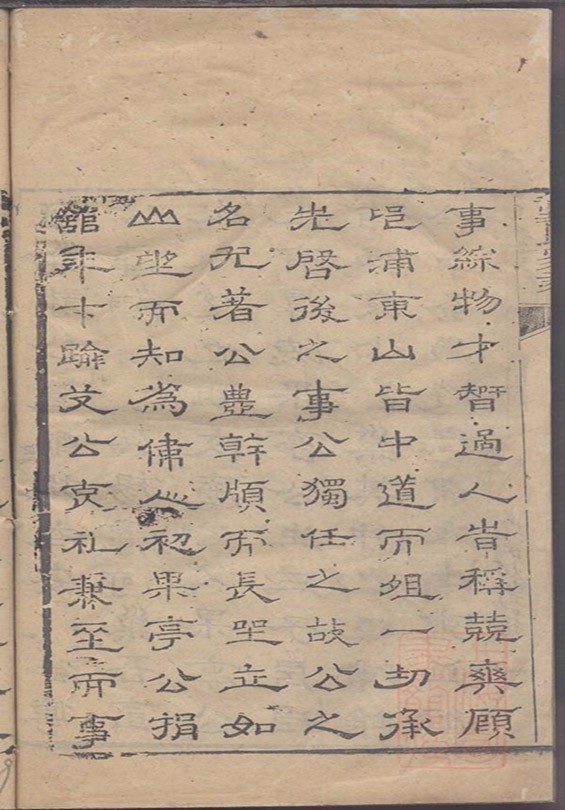 事綜物才智過人皆稱競爽顧
邑浦東山皆中道而殂一切承
先啓後之事公獨任之故公之
名尤著公豊幹頎而長坐立如
山望而知為偉人初果亭公捐
館年十踰艾公哀礼兼至而事